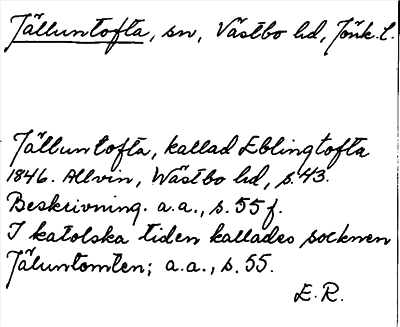 Jälluntofta, sn, Västbo hd, Jönk. l.
Jälluntofta, kallad Eblingtofta
1846. Allvin, Wästbo hd, s. 43.
Beskrivning. a.a., s. 55 f.
I katolska tiden kallades socknen
Jäluntomten; a.a., s. 55.
E.R.